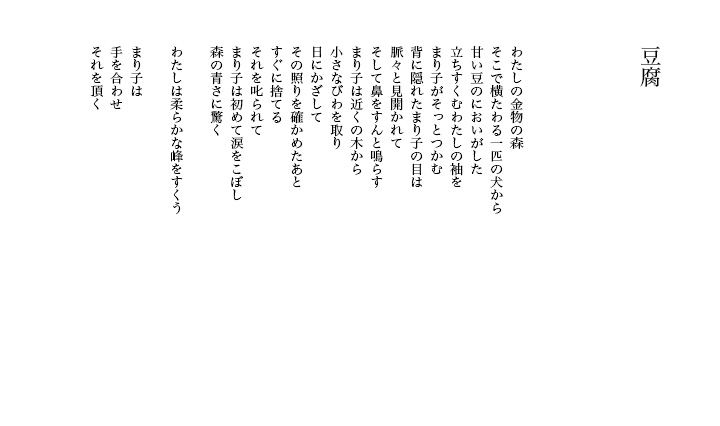 豆腐
わたしの金物の森
そこで横たわる一匹の犬から
甘い豆のにおいがした
立ちすくむわたしの袖を
まり子がそっとつかむ
背に隠れたまり子の目は
脈々と見開かれて
そして鼻をすんと鳴らす
まり子は近くの木から
小さなびわを取り
日にかざして
その照りを確かめたあと
すぐに捨てる
それを叱られて
まり子は初めて涙をこぼし
森の青さに驚く
わたしは柔らかな峰をすくう
まり子は
手を合わせ
それを頂く